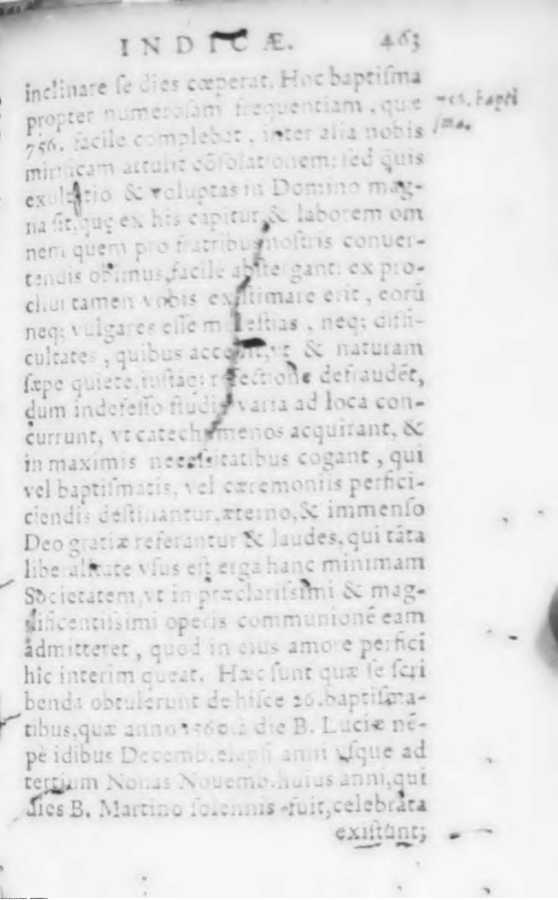 INDICÆ. 463
inclinare ſe dies cœperat. Hoc baptiſma
propter numeroſam frequentiam, quæ
756. facile complebat, inter alia nobis
mirificam attulit cõſolationem: ſed quis
exultatio & voluptas in Domino mag-
na ſit, quę ex his capitur, & laborem om
nem quem pro fratribus noſtris conuer-
tendis obimus, facile abſtergant: ex pro-
cliui tamen vobis exiſtimare erit, eorũ
neq; vulgares eſſe moleſtias, neq; diffi-
cultates, quibus accedit, vt & naturam
ſæpe quiete, iuſtaq; refectione defraudẽt,
dum indefeſſo ſtudio varia ad loca con-
currunt, vt catechumenos acquirant, &
in maximis neceſsitatibus cogant, qui
vel baptiſmatis, vel cæremoniis perfici-
ciendis deſtinantur. æterno, & immenſo
Deo gratiæ referantur & laudes, qui tãta
liberalitate vſus eſt erga hanc minimam
Societatem, vt in præclariſsimi & mag-
nificentiſsimi operis communionẽ eam
admitteret, quod in eius amore perfici
hic interim queat. Hæc ſunt quæ ſe ſcri
benda obtulerunt de hiſce 26. baptiſma-
tibus, quæ anno 1560. à die B. Luciæ nẽ-
pè idibus Decemb. elapſi anni vſque ad
tertium Nonas Nouemb. huius anni, qui
dies B. Martino ſolennis fuit, celebrata
exiſtunt;
756. Bapti
ſma.